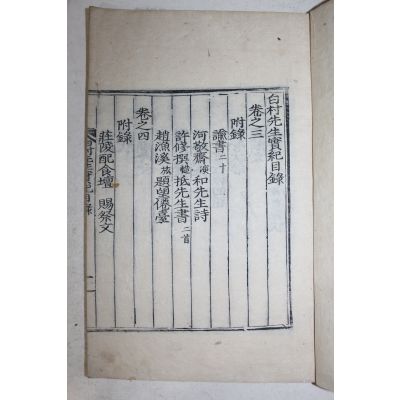 白村先生實紀目錄
卷之三
附錄
諭書二十
河敬齋演和先生詩
許修撰慥抵先生書二首
趙漁溪旅題望僊臺
卷之四
附錄
莊陵配食壇 賜祭文